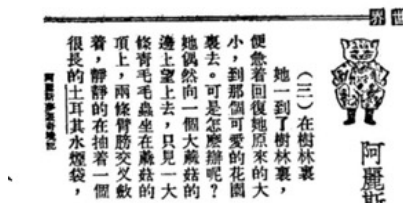 世界
阿麗斯
(三)在樹林裏
她一到了樹林裏，
便急着回復她原來的大
小，到那個可愛的花園
裏去。可是怎麼辦呢？
她偶然向一個大蘑菇的
邊上望上去，只見一大
條靑毛毛蟲坐在蘑菇的
頂上，兩條臂膀交叉斂
着，靜靜的在抽着一個
很長的土耳其水煙袋，
阿麗斯夢遊奇境記